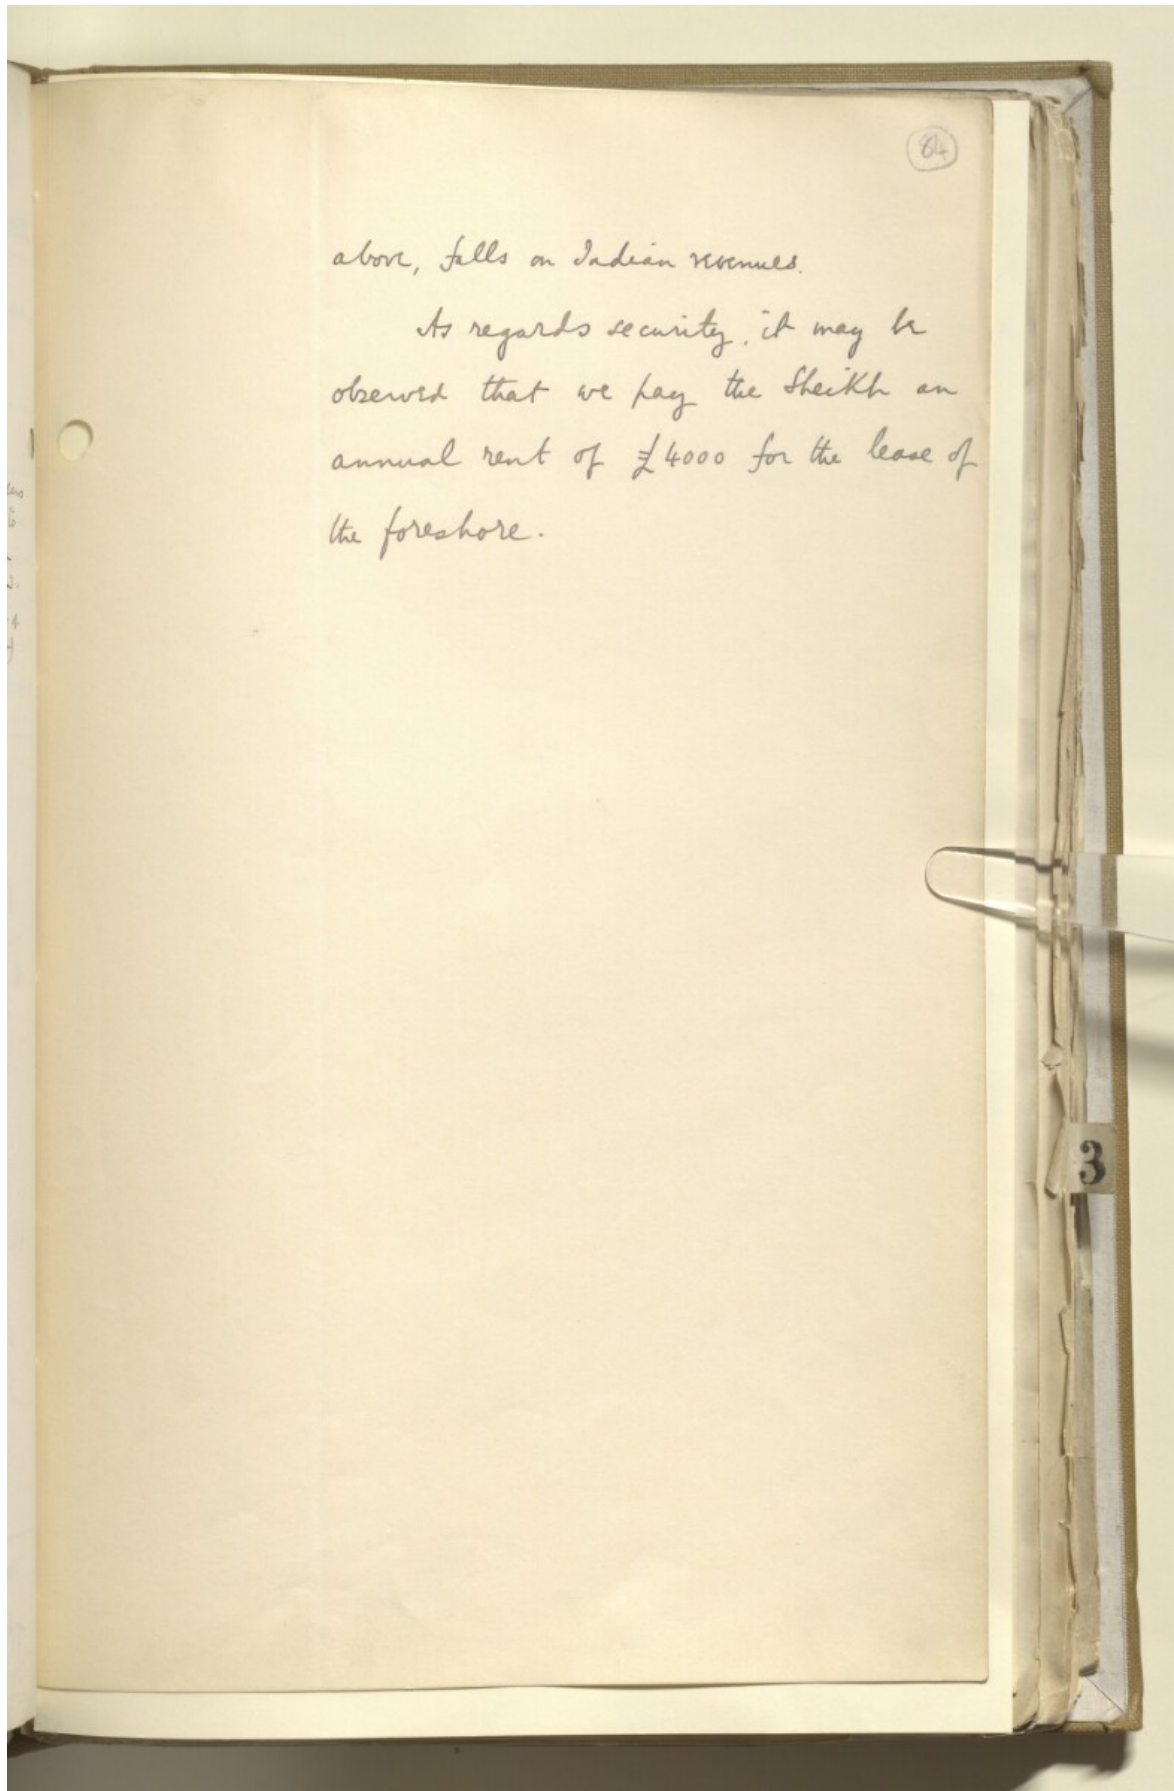 84
above, falls on Indian revenues.
As regards security, it may be
observed that we pay the Sheikh an
annual rent of £4000 for the lease of
the foreshore.
3